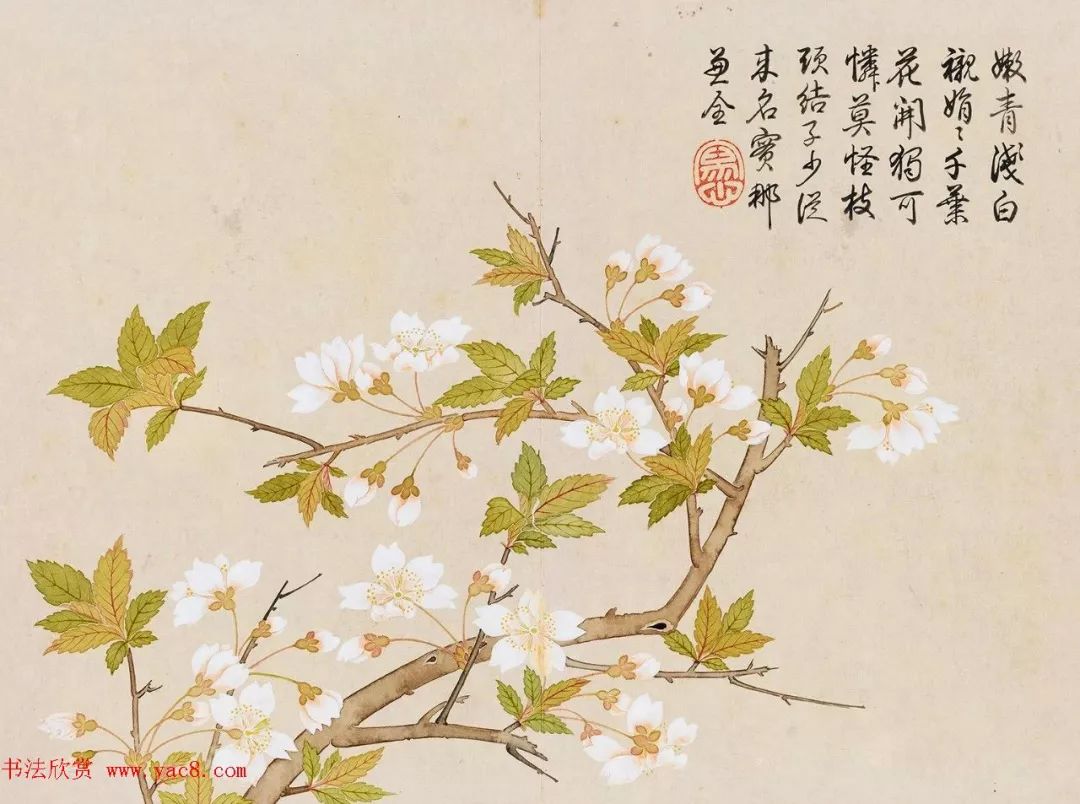 嫩青淺白
襯娟〻千葉
花開獨可
憐莫怪枝
頭結子少從
来名實那
兼全
书法欣赏 www.yac8.com